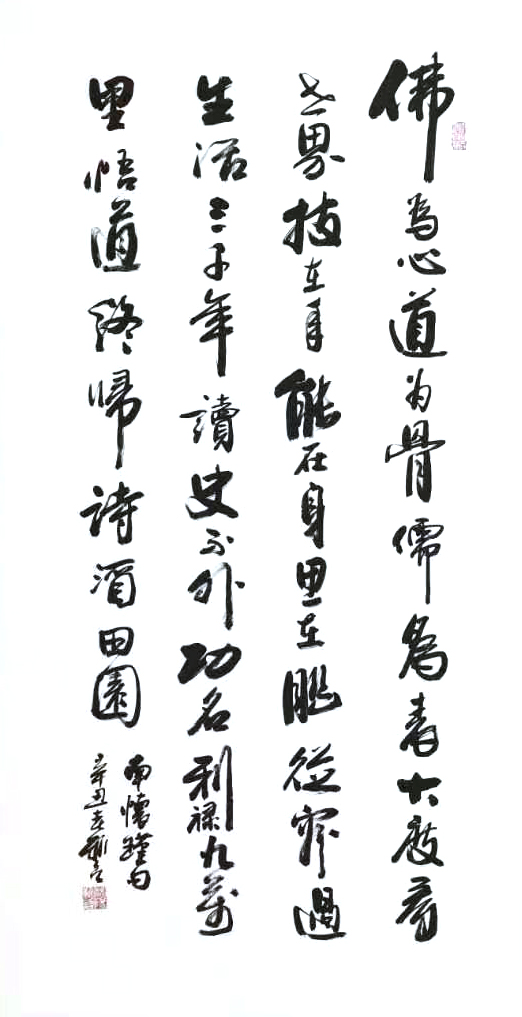 佛为心道为骨儒為表大度看
世界技在手能在身思在腦從容過
生活三千年讀史不外功名利祿九萬
里悟道終歸詩酒田園
南懷瑾句
辛丑